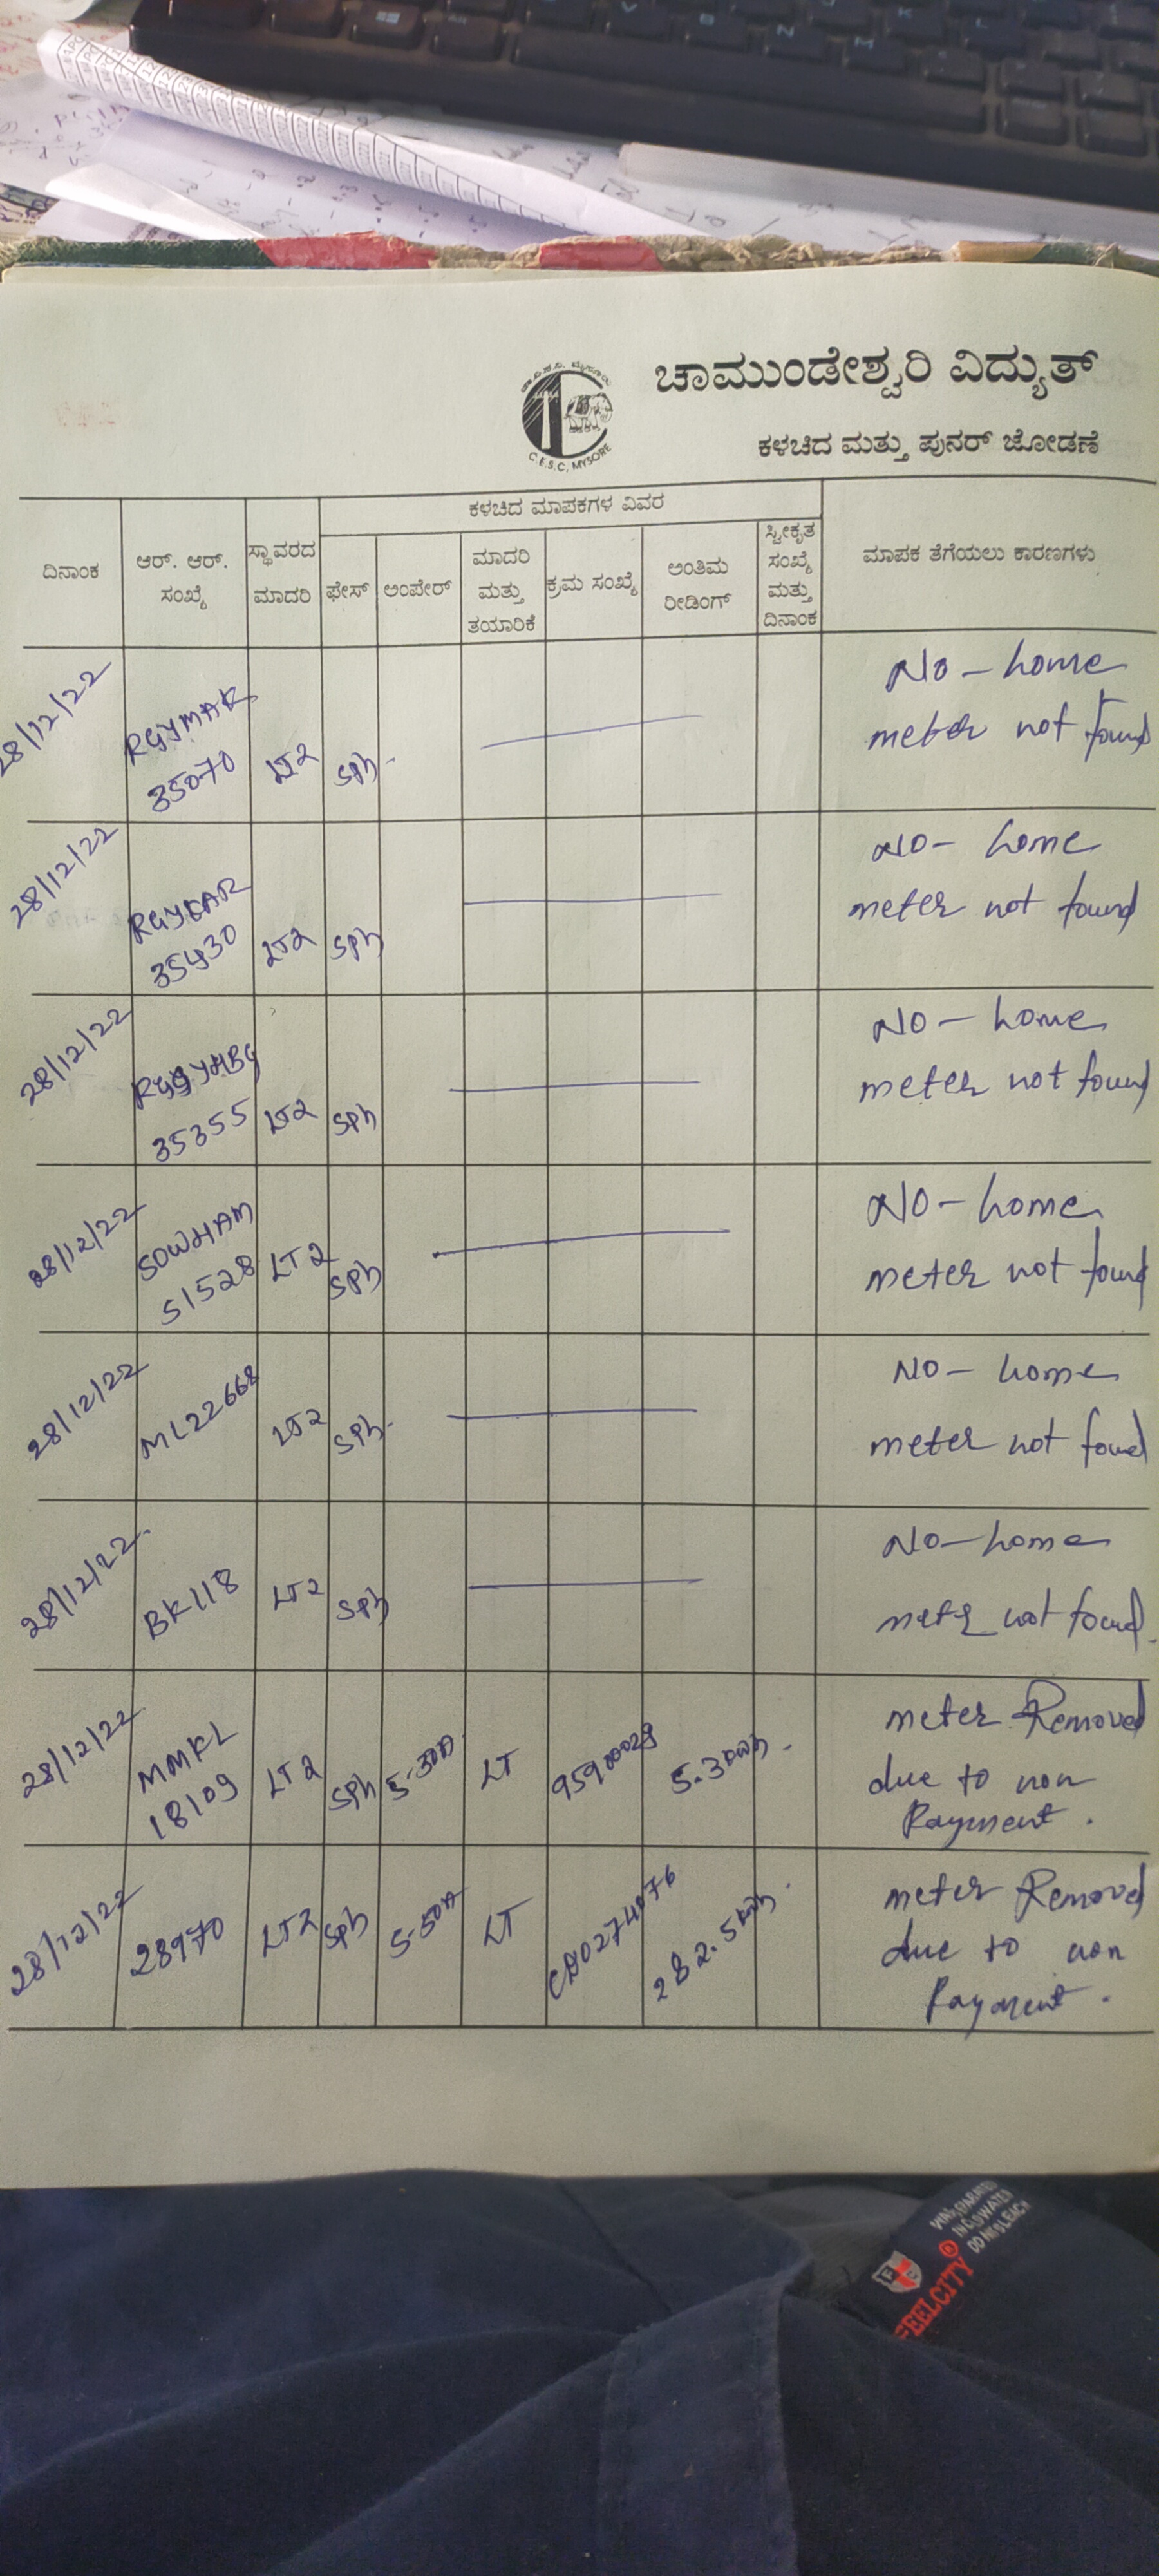 ಚಾಮುಂಡೇಶ್ವರಿ ವಿದ್ಯುತ್
C.E.S.C, MYSORE
ಕಳಚಿದ ಮತ್ತು ಪುನರ್ ಜೋಡಣೆ
ದಿನಾಂಕ
ಆರ್. ಆರ್.
ಸಂಖ್ಯೆ
ಸ್ಥಾವರದ
ಮಾದರಿ
ಕಳಚಿದ ಮಾಪಕಗಳ ವಿವರ
ಫೇಸ್
ಅಂಪೇರ್
ಮಾದರಿ
ಮತ್ತು
ತಯಾರಿಕೆ
ಕ್ರಮ ಸಂಖ್ಯೆ
ಅಂತಿಮ
ರೀಡಿಂಗ್
ಸ್ವೀಕೃತ
ಸಂಖ್ಯೆ
ಮತ್ತು
ದಿನಾಂಕ
ಮಾಪಕ ತೆಗೆಯಲು ಕಾರಣಗಳು
28/12/22
35070
LT2
SPh
No - home
meter not found
28/12/22
35430
LT2
SPh
NO - home
meter not found
28/12/22
35355
LT2
SPh
NO - home
meter not found
28/12/22
51528
LT2
SPh
NO - home
meter not found
28/12/22
ML22668
LT2
SPh
NO - home
meter not found
28/12/22
BK118
LT2
SPh
NO - home
not found
28/12/22
MMKL
18109
LT2
SPh
5-30A
LT
meter Removed
due to non
Payment.
28/12/22
28970
LT2
SPh
LT
meter Removed
due to non
Payment.
FEELCITY